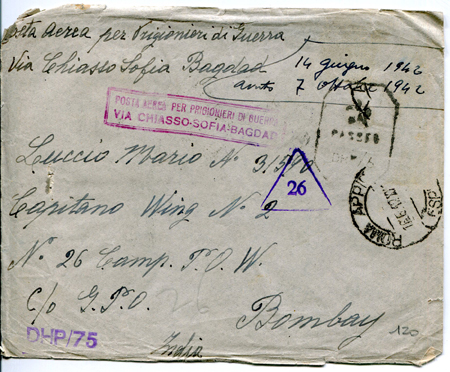 Posta Aerea per Prigionieri di Guerra
Via Chiasso Sofia Bagdad
14 giugno 1942
7 ottobre 1942
POSTA AEREA PER PRIGIONIERI DI GUERRA
VIA CHIASSO-SOFIA-BAGDAD
PASSED
DHP/A
Luccio Mario N° 31540
26
Capitano Wing N° 2
ROMA APP
N° 26 Camp. P.O.W.
c/o G.P.O.
Bombay
DHP/75
India
120